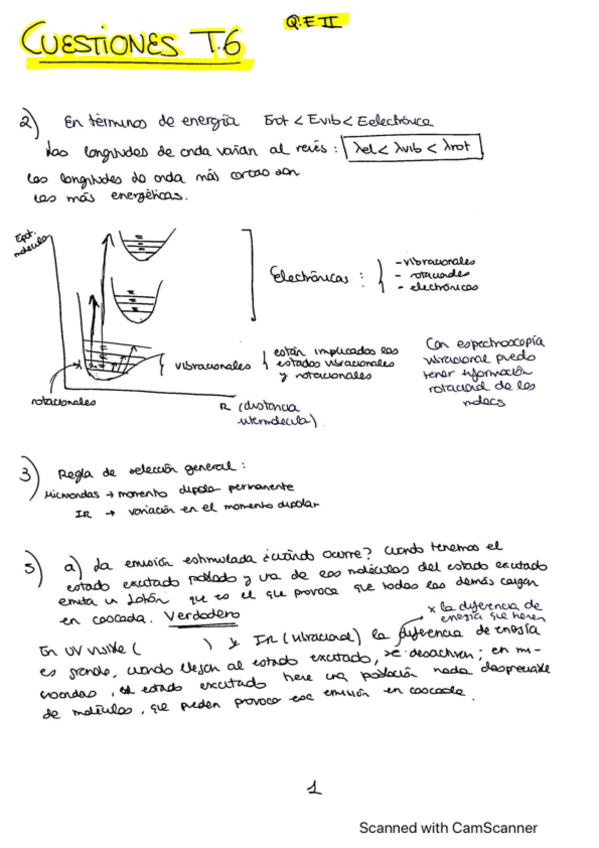 Q.F II
CUESTIONES T.6
2) En términos de energía Erot < Evib < Eelectrónica
Las longitudes de onda varían al revés: λel < λvib < λrot
Las longitudes de onda más cortas son
las más energéticas.
Epot.
molécula
Electrónicas:
- vibracionales
- rotacionales
- electrónicas
vibracionales
están implicados los
estados vibracionales
y rotacionales
Con espectroscopía
vibracional puedo
tener información
rotacional de las
molecs
rotacionales
R (distancia
intermolecular)
3) Regla de selección general:
Microondas → momento dipolar permanente
IR → variación en el momento dipolar
5) a) La emisión estimulada ¿cuándo ocurre? Cuando tenemos el
estado excitado poblado y una de las moléculas del estado excitado
emita un fotón que es el que provoca que todas las demás caigan
en cascada. Verdadero
x la diferencia de
energía que tienen
En UV visible ( ) y IR (vibracional) la diferencia de energía
es grande, cuando llegan al estado excitado, se desactivan; en mi-
croondas, el estado excitado tiene una población nada despreciable
de moléculas, que pueden provocar esa emisión en cascada.
1
Scanned with CamScanner